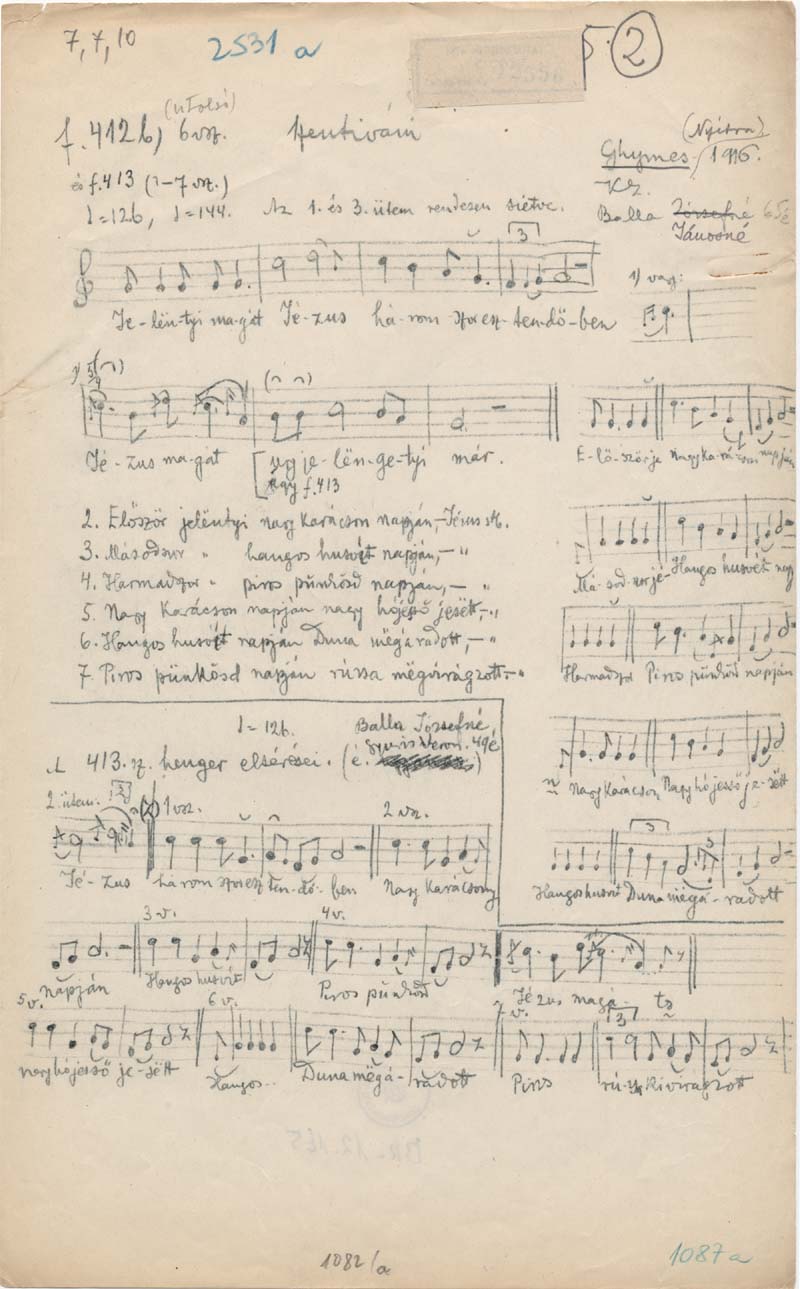 7, 7, 10
2531 a
2
(utolsó)
f. 412 b) 6 vsz. Szentiváni
(Nyitra)
Ghymes 1916.
és f. 413 (1–7 vsz.)
K. Z.
♩=126, ♩=144. Az 1. és 3. ütem rendesen sietve.
Balla Józsefné
Jánosné
3
1) vagy:
Je-lën-tyi ma-gát Jé-zus há-rom szoresz-ten-dő-ben
Jé-zus ma-gát [ugy je-lën-ge-tyi már.
így f. 413
E-lő-ször je Nagy ka-rá-cson napján
2. Először jelëntyi nagy karácson napján,– Jézus stb.
3. Másodszor " hangos husvét napján,– "
4. Harmadszor " piros pünkösd napján,– "
5. Nagy karácson napján nagy hójesső jesëtt,– "
6. Hangos husvét napján Duna mëgáradott,– "
7. Piros pünkösd napján rúzsa mëgvirágzott– "
Má-sod-szor jé- Hangos husvét nagy
Harmadszor Piros pünkösd napján
Nagy karácson Nagy hójesső je-sëtt
3
Hangos husvét Duna mëgá-radott
♩=126. Balla Józsefné
413. sz. henger eltérései. (é. 49 é)
2. ütem. 1 vsz. 2 vsz.
Jé-zus há rom szoreszten-dő-ben Nagy karácsony
3 v. 4 v.
napján Hangos husvét Piros pünkösd Jézus magá-
5 v. 6 v. 7 v. 3
nagy hójesső je-sëtt Hangos.. Duna mëgá-radott Piros rú-zsa kivirágzott
1082/a
1087 a